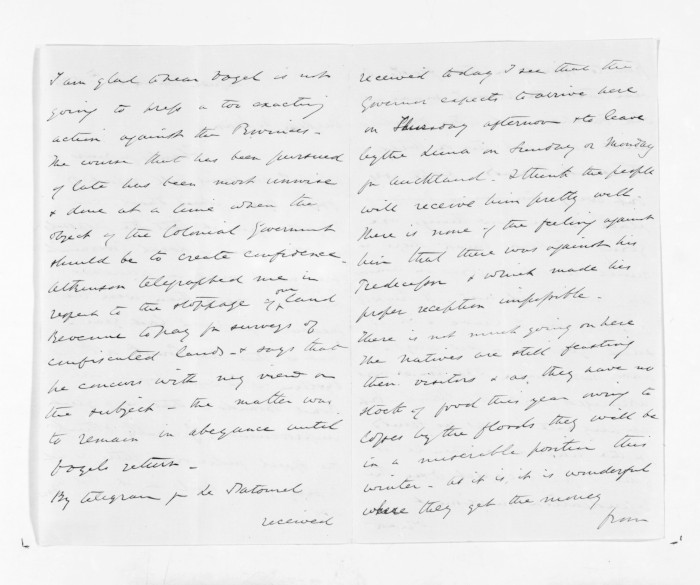 I am glad to hear Vogel is not
going to press a too exacting
action against the Provinces -
The course that has been pursued
of late has been most unwise
& done at a time when the
object of the Colonial Government
should be to create confidence -
Atkinson telegraphed me in
respect to the stoppage of our land
Revenue to pay for surveys of
confiscated lands - & says that
he concurs with my view on
the subject - the matter was
to remain in abeyance until
Vogels return -
By telegram fr de
received
received today I see that the
Governor expects to arrive here
on Thursday afternoon & to leave
by the Luna on Sunday or Monday
for Auckland - I think the people
will receive him pretty well.
There is none of the feeling against
him that there was against his
Predecessor & which made his
proper reception impossible -
There is not much going on here
The natives are still feasting
their visitors & as they have no
stock of food this year owing to
losses by the floods they will be
in a miserable position this
winter - as it is it is wonderful
where they get the money
from